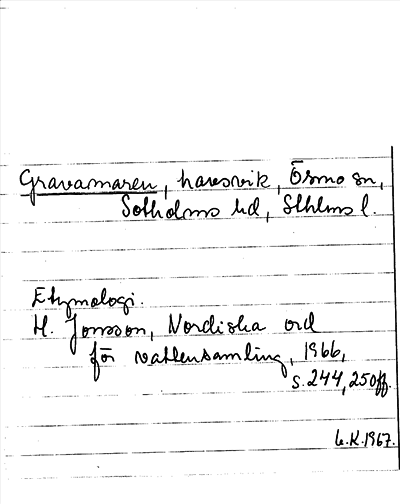 Gravamaren, havsvik, Ösmo sn,
Sotholms hd, Sthlms l.
Etymologi.
H. Jonsson, Nordiska ord
för vattensamling, 1966,
s. 244, 250ff.
L.K. 1967.